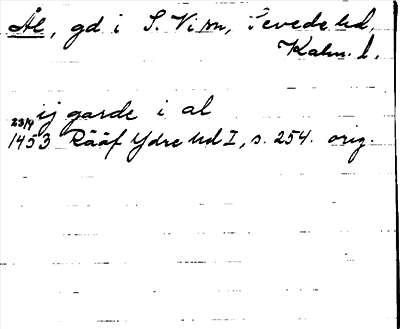 Ål, gd i S. Vi sn, Sevede hd,
Kalm. l.
ij garde i al
23/9
1453 Rääf Ydre hd I, s. 254. orig.